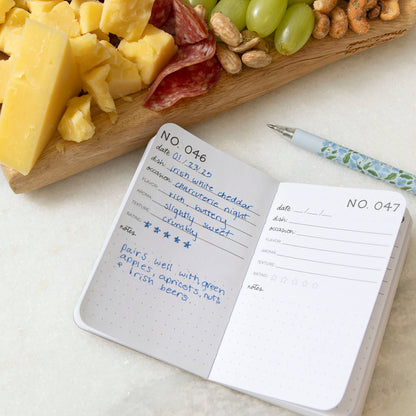 NO. 046
date 01/23/25
dish Irish white cheddar
occasion charcuterie night
FLAVOR rich buttery
AROMA slightly sweet
TEXTURE crumbly
RATING ★★★★★
notes
Pairs well with green
apples, apricots, nuts
& Irish beers
NO. 047
date __/__/__
dish
occasion
FLAVOR
AROMA
TEXTURE
RATING ☆☆☆☆☆
notes